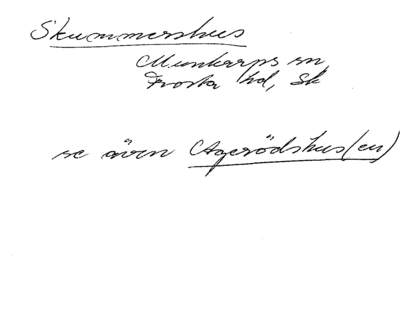 Skummershus
Munkarps sn,
Frosta hd, Sk
se även Agerödshus(en)